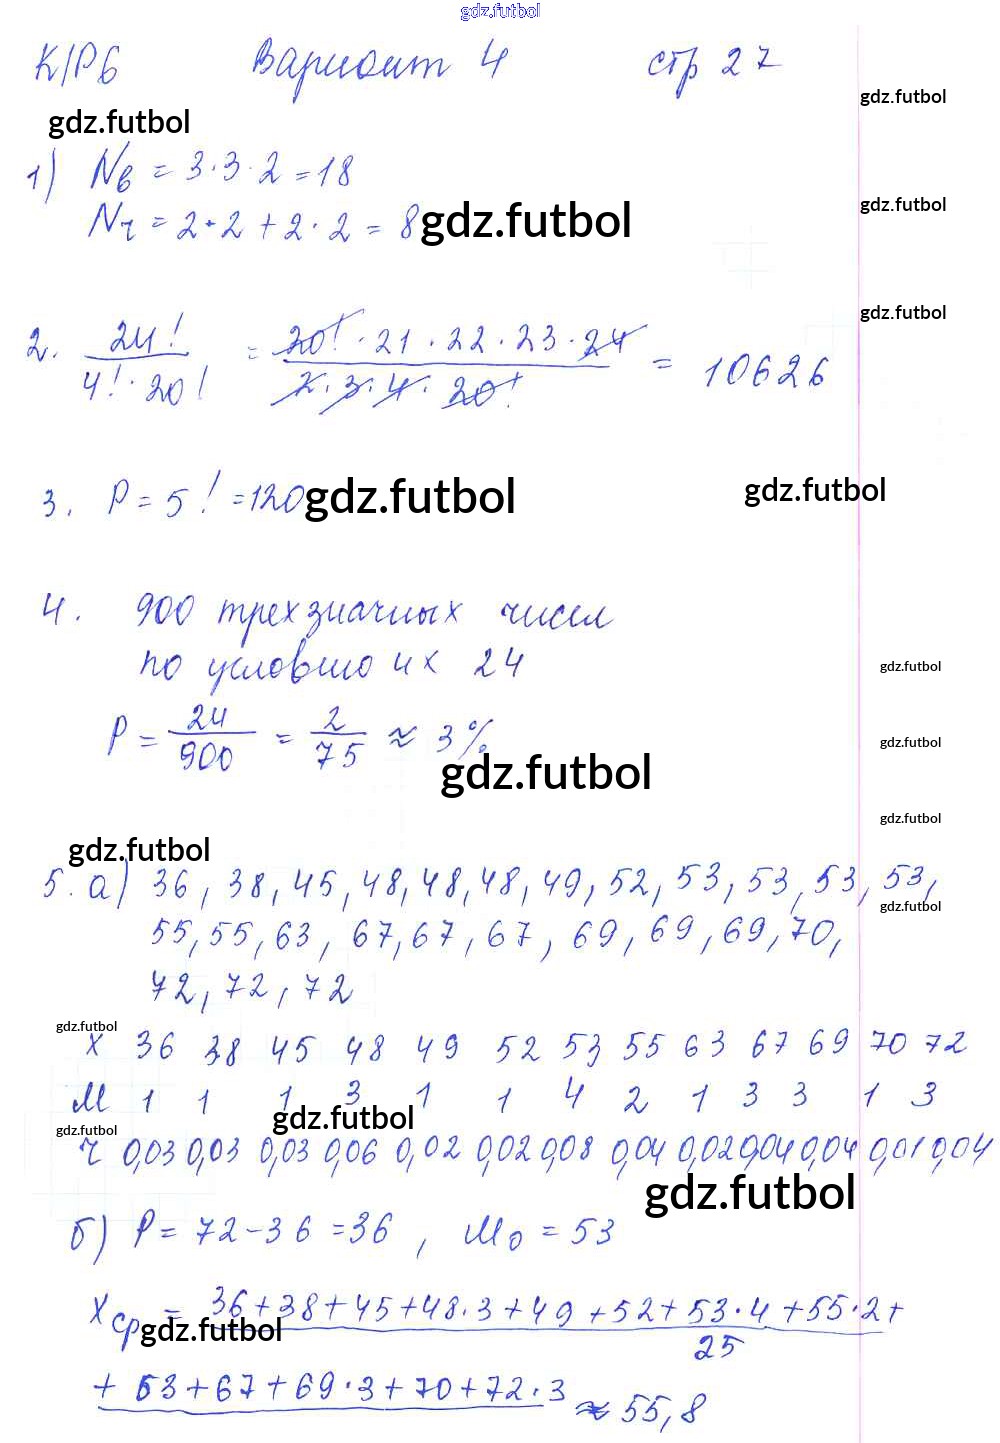 gdz.futbol
К/Р6 Вариант 4 стр 27
gdz.futbol
gdz.futbol
1) Nв = 3·3·2 = 18
gdz.futbol
Nч = 2·2 + 2·2 = 8 gdz.futbol
gdz.futbol
2. 24! / 4!·20! = 20!·21·22·23·24 / 2·3·4·20! = 10626
3. P = 5! = 120 gdz.futbol gdz.futbol
4. 900 трехзначных чисел
по условию их 24
gdz.futbol
P = 24/900 = 2/75 ≈ 3%
gdz.futbol
gdz.futbol
gdz.futbol
gdz.futbol
5. а) 36, 38, 45, 48, 48, 48, 49, 52, 53, 53, 53, 53,
gdz.futbol
55, 55, 63, 67, 67, 67, 69, 69, 69, 70,
72, 72, 72
gdz.futbol
X 36 38 45 48 49 52 53 55 63 67 69 70 72
M 1 1 1 3 1 1 4 2 1 3 3 1 3
gdz.futbol
gdz.futbol
ч 0,03 0,03 0,03 0,06 0,02 0,02 0,08 0,04 0,02 0,04 0,04 0,01 0,04
gdz.futbol
б) P = 72 - 36 = 36, Mo = 53
Xср = 36+38+45+48·3+49+52+53·4+55·2+
gdz.futbol
25
+ 63+67+69·3+70+72·3 ≈ 55,8